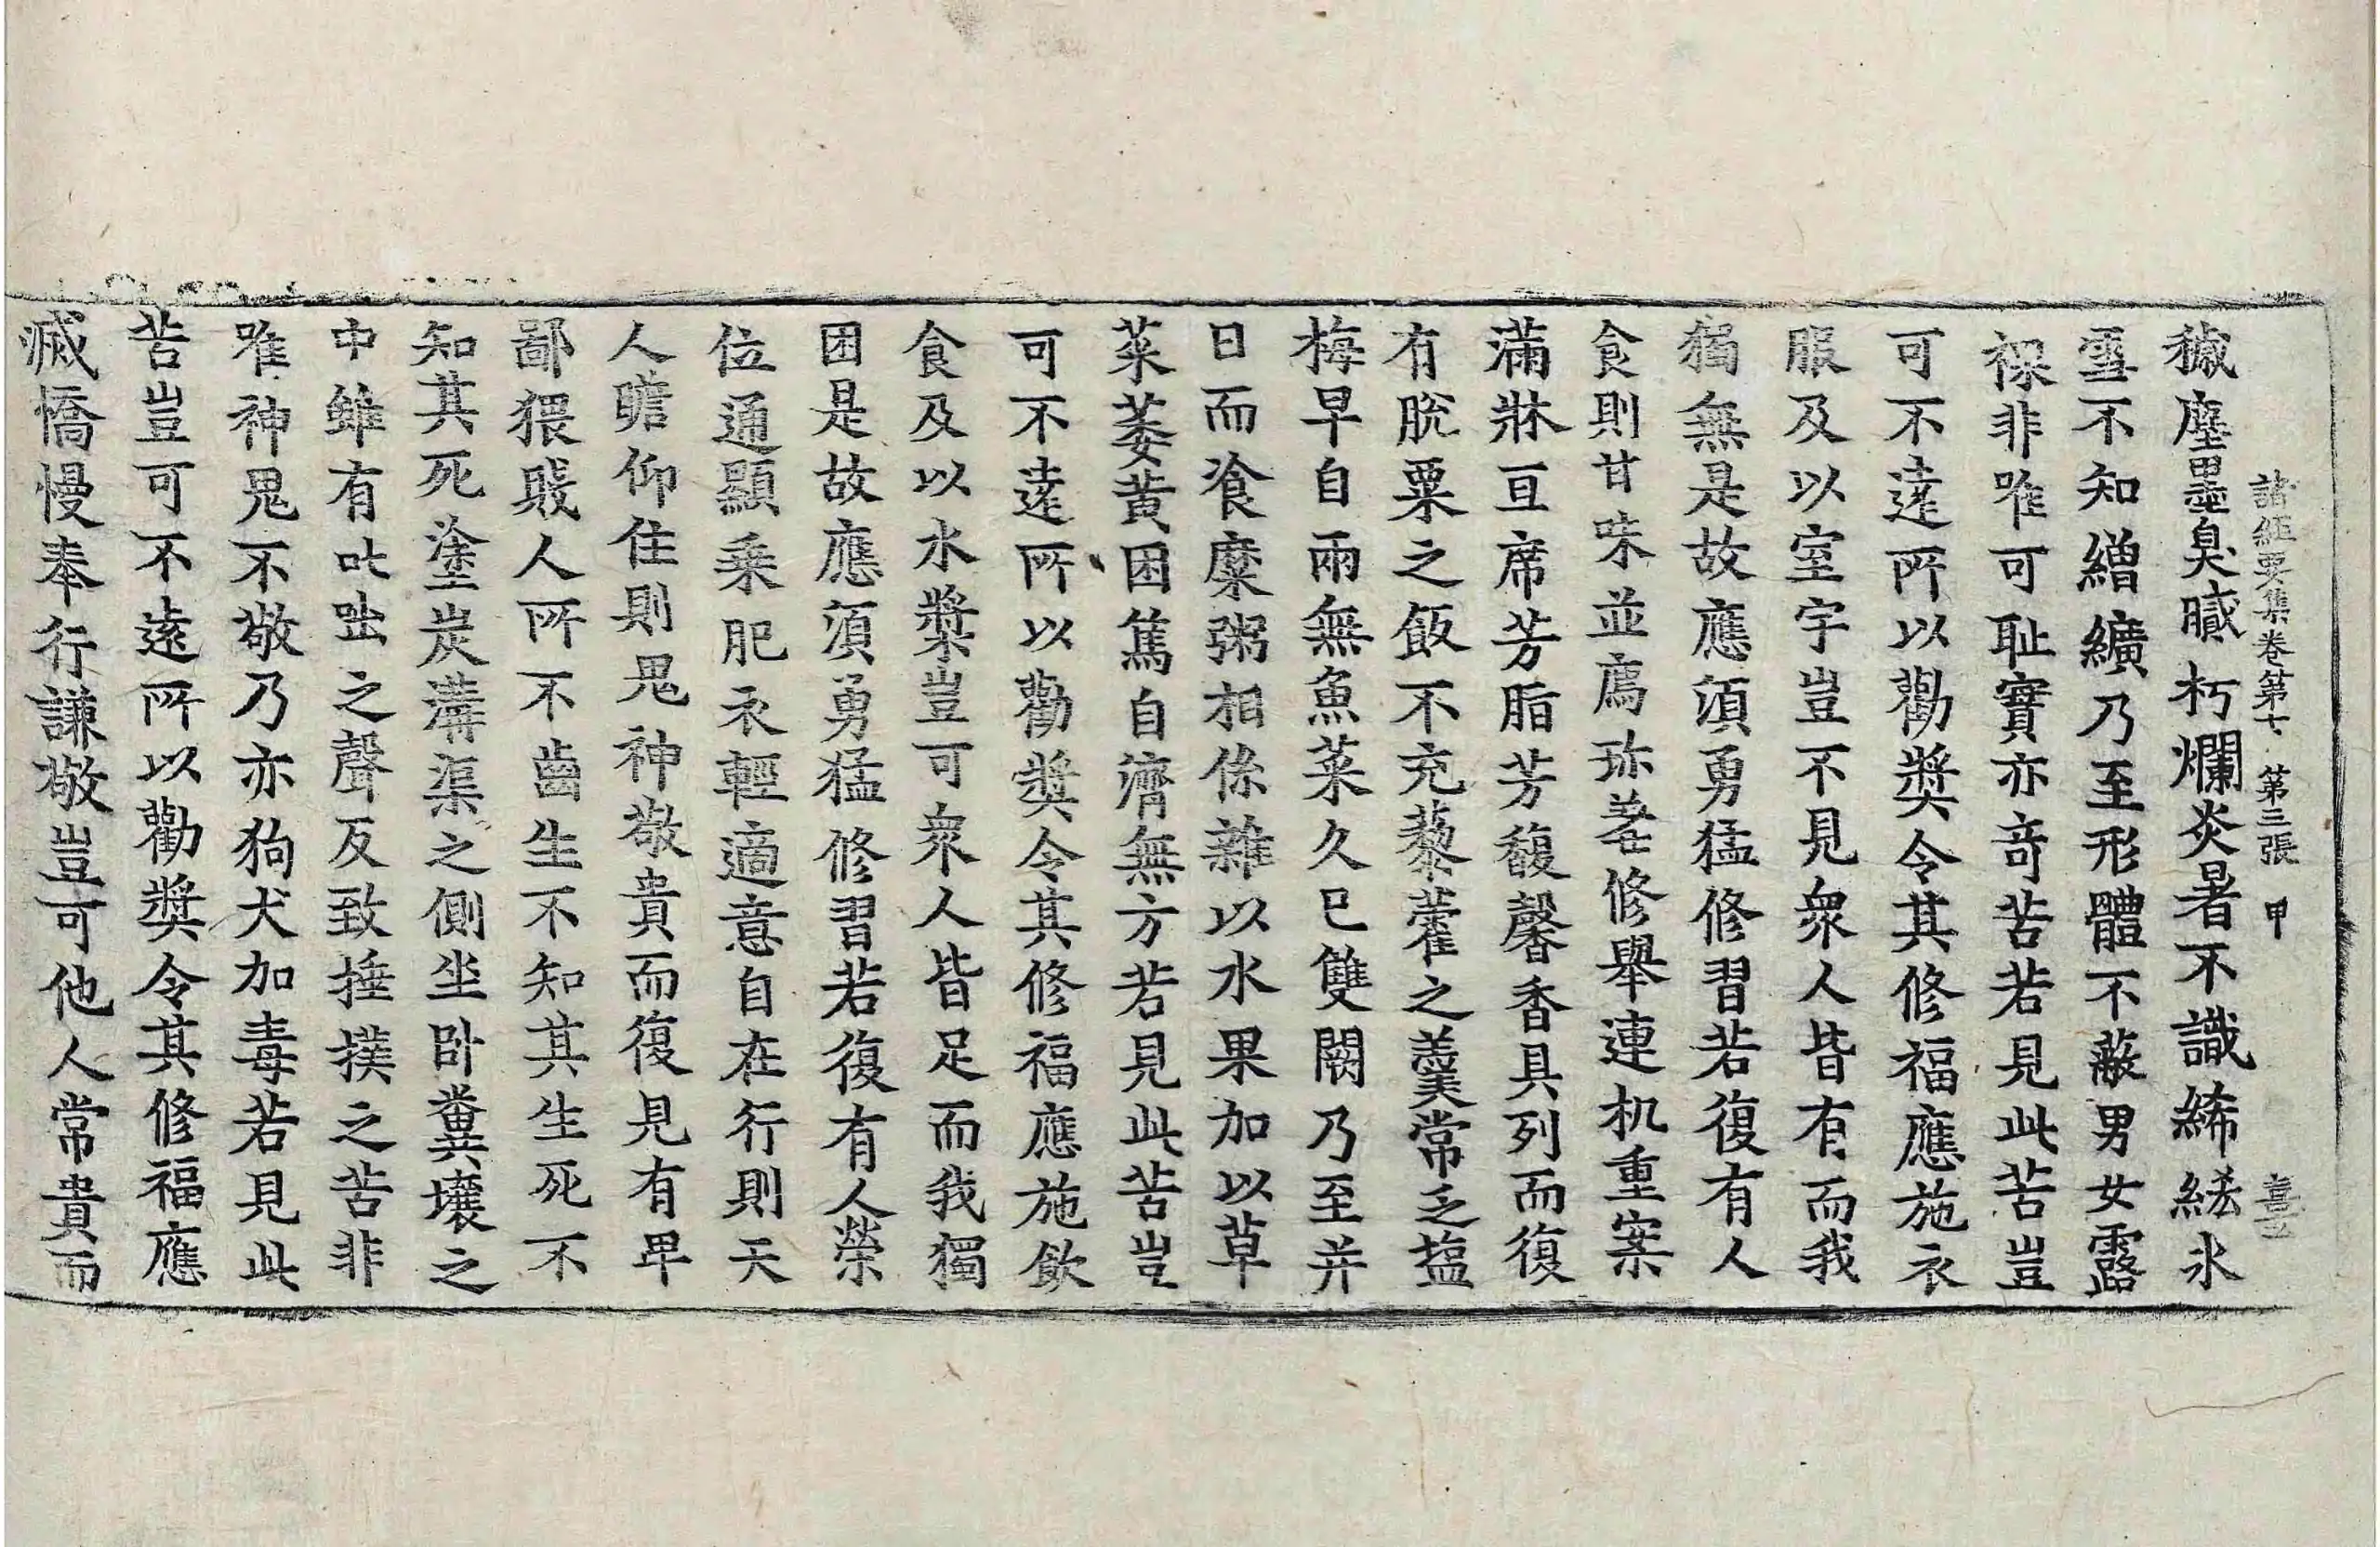 諸經要集卷第七 第三張 甲
穢塵墨臭膩朽爛炎暑不識絺綌氷
雪不知繒纊乃至形體不蔽男女露
裸非唯可恥實亦奇苦若見此苦豈
可不遠所以勸奬令其修福應施衣
服及以室宇豈不見衆人皆有而我
獨無是故應須勇猛修習若復有人
食則甘味並薦珎羞修舉連机重案
滿牀亘席芳脂芳馥馨香具列而復
有脫粟之飯不充藜藿之羹常乏塩
梅早自兩無魚菜久已雙闕乃至并
日而飡糜粥相係雜以水果加以草
菜萎黄困篤自濟無方若見此苦豈
可不遠所以勸奬令其修福應施飲
食及以水漿豈可衆人皆足而我獨
困是故應須勇猛修習若復有人榮
位通顯乘肥衣輕適意自在行則天
人瞻仰住則鬼神敬貴而復見有卑
鄙猥賤人所不齒生不知其生死不
知其死塗炭溝渠之側坐卧糞壤之
中雖有叱咄之聲反致捶撲之苦非
唯神鬼不敬乃亦狗犬加毒若見此
苦豈可不遠所以勸奬令其修福應
滅憍慢奉行謙敬豈可他人常貴而